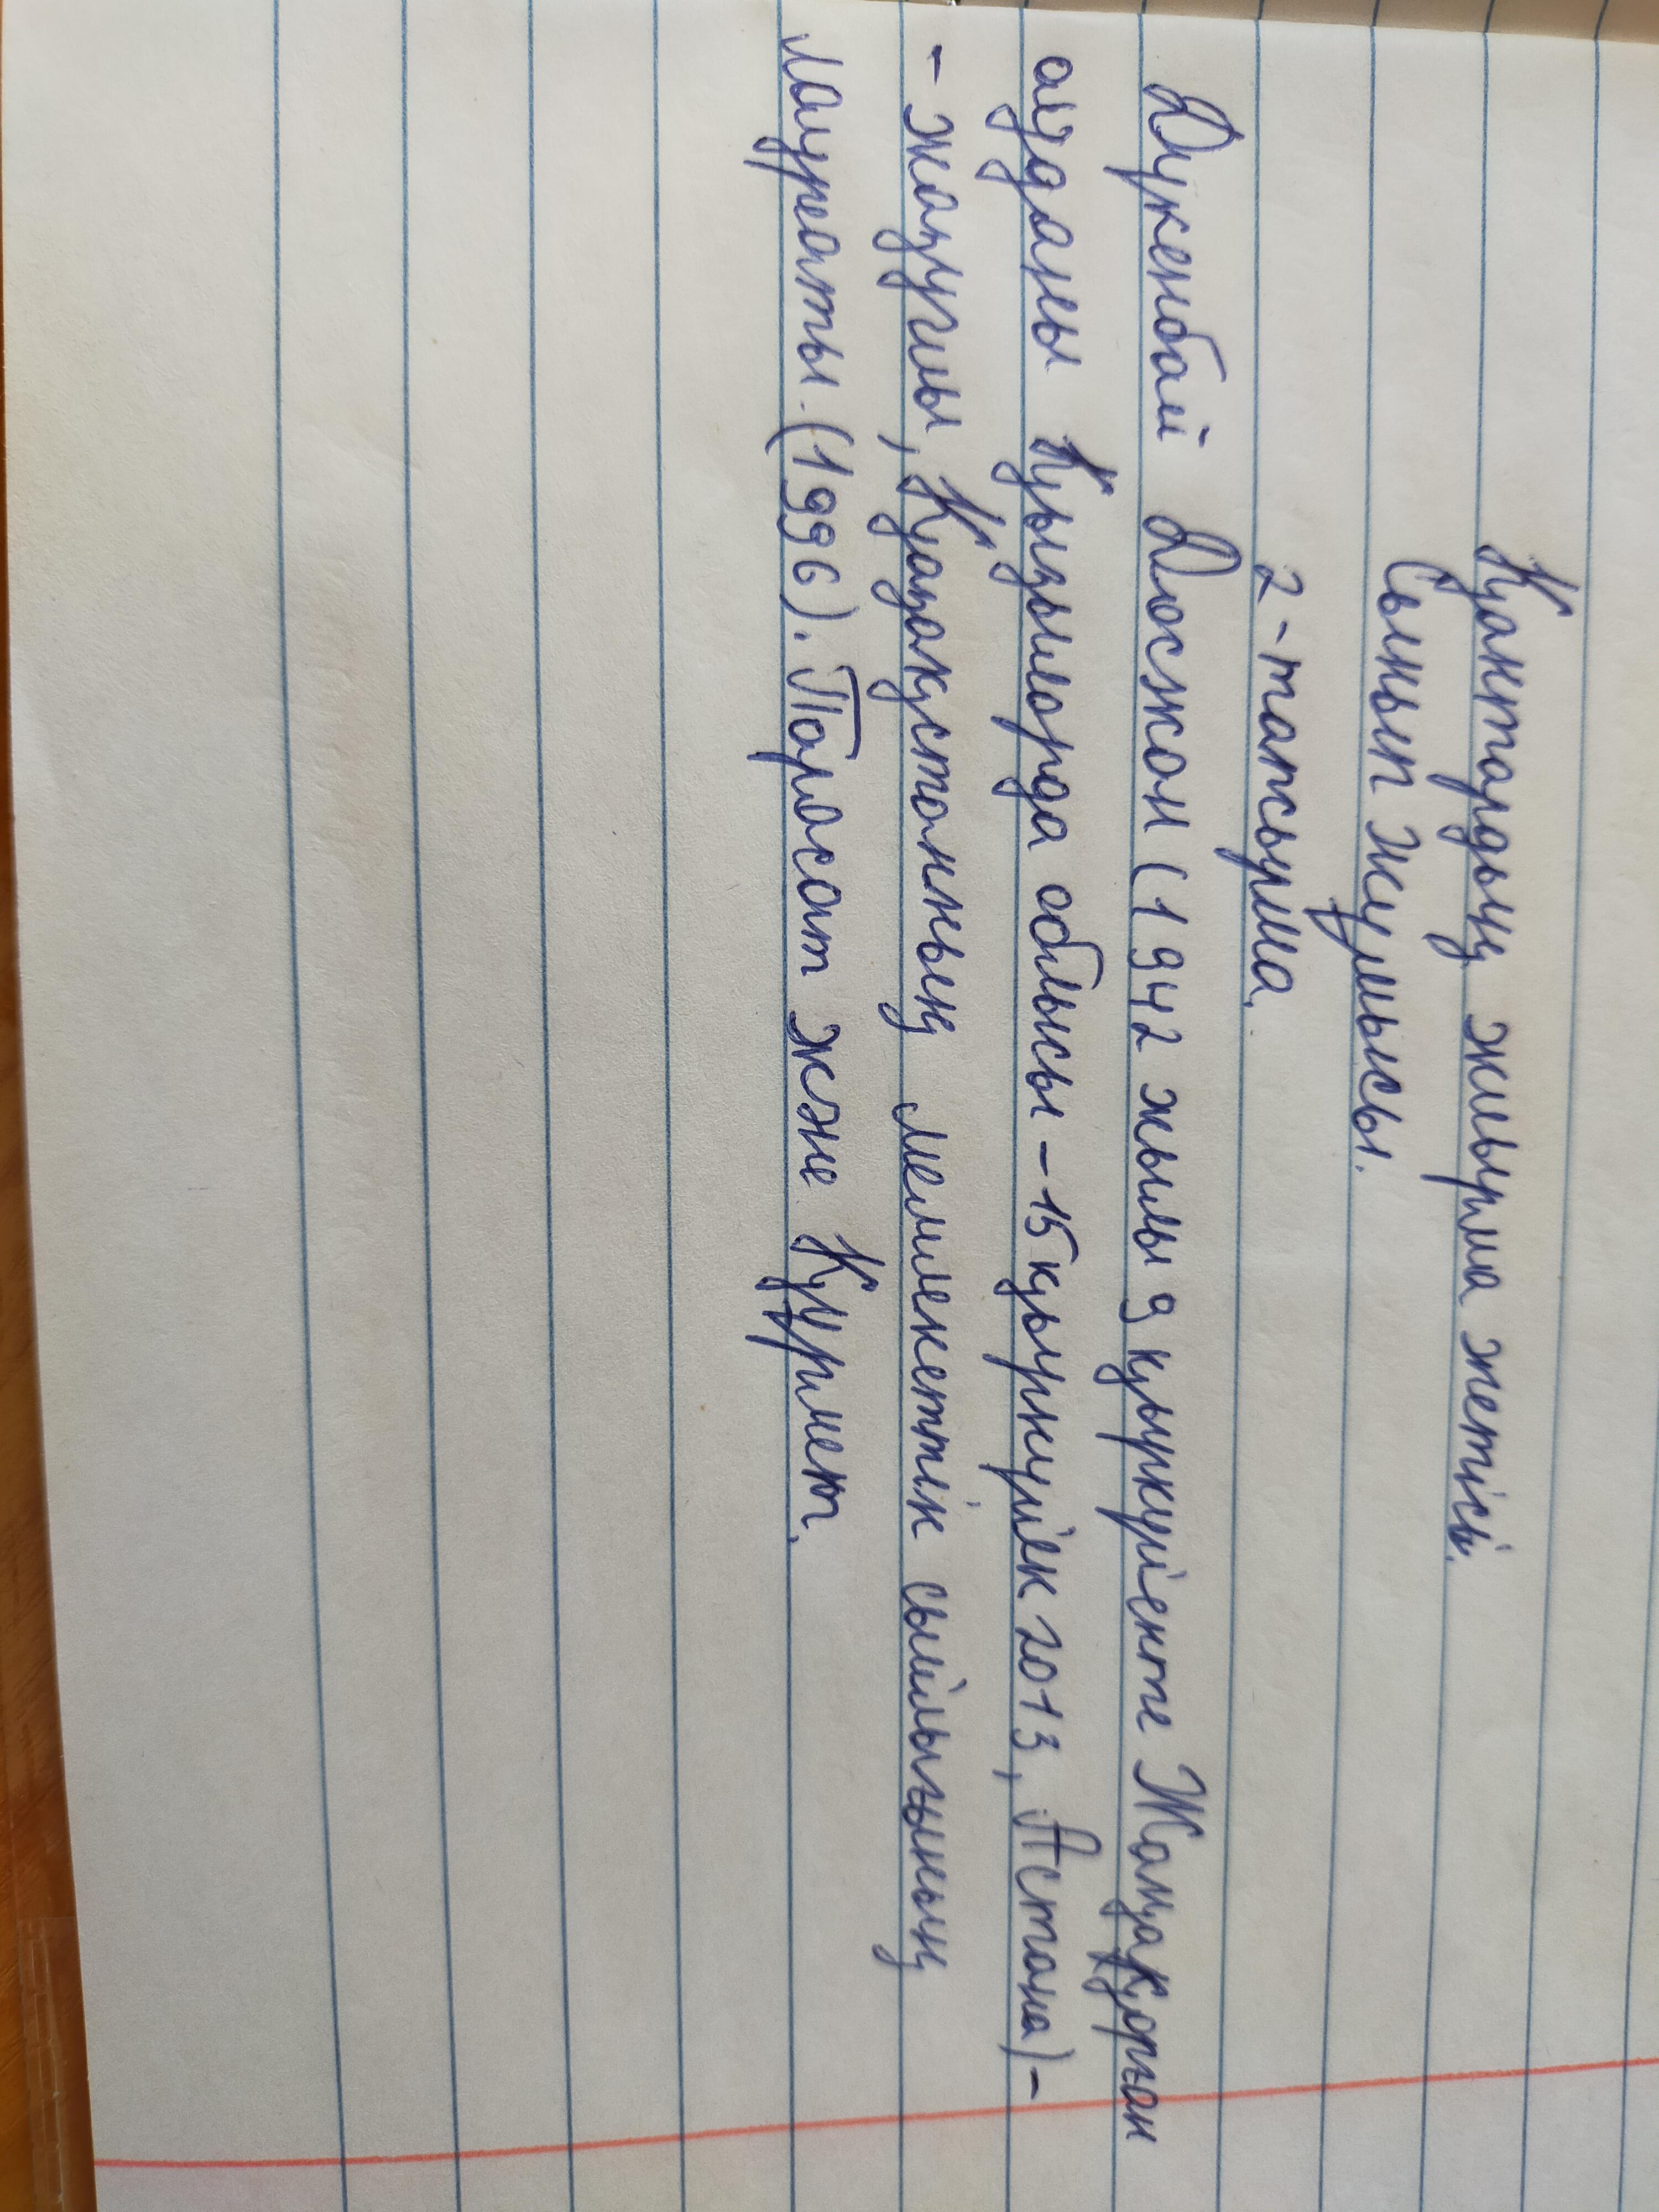 Қаңтардың жиырма жетісі.
Сынып жұмысы.
2-тапсырма.
Дукенбай Досжан (1942 жылы 9 қыркүйекте Жаңақорған
ауданы Қызылорда облысы - 15 қыркүйек 2013, Астана) -
- жазушы, Қазақстанның мемлекеттік сыйлығының
лауреаты (1996). Парасат және Құрмет.